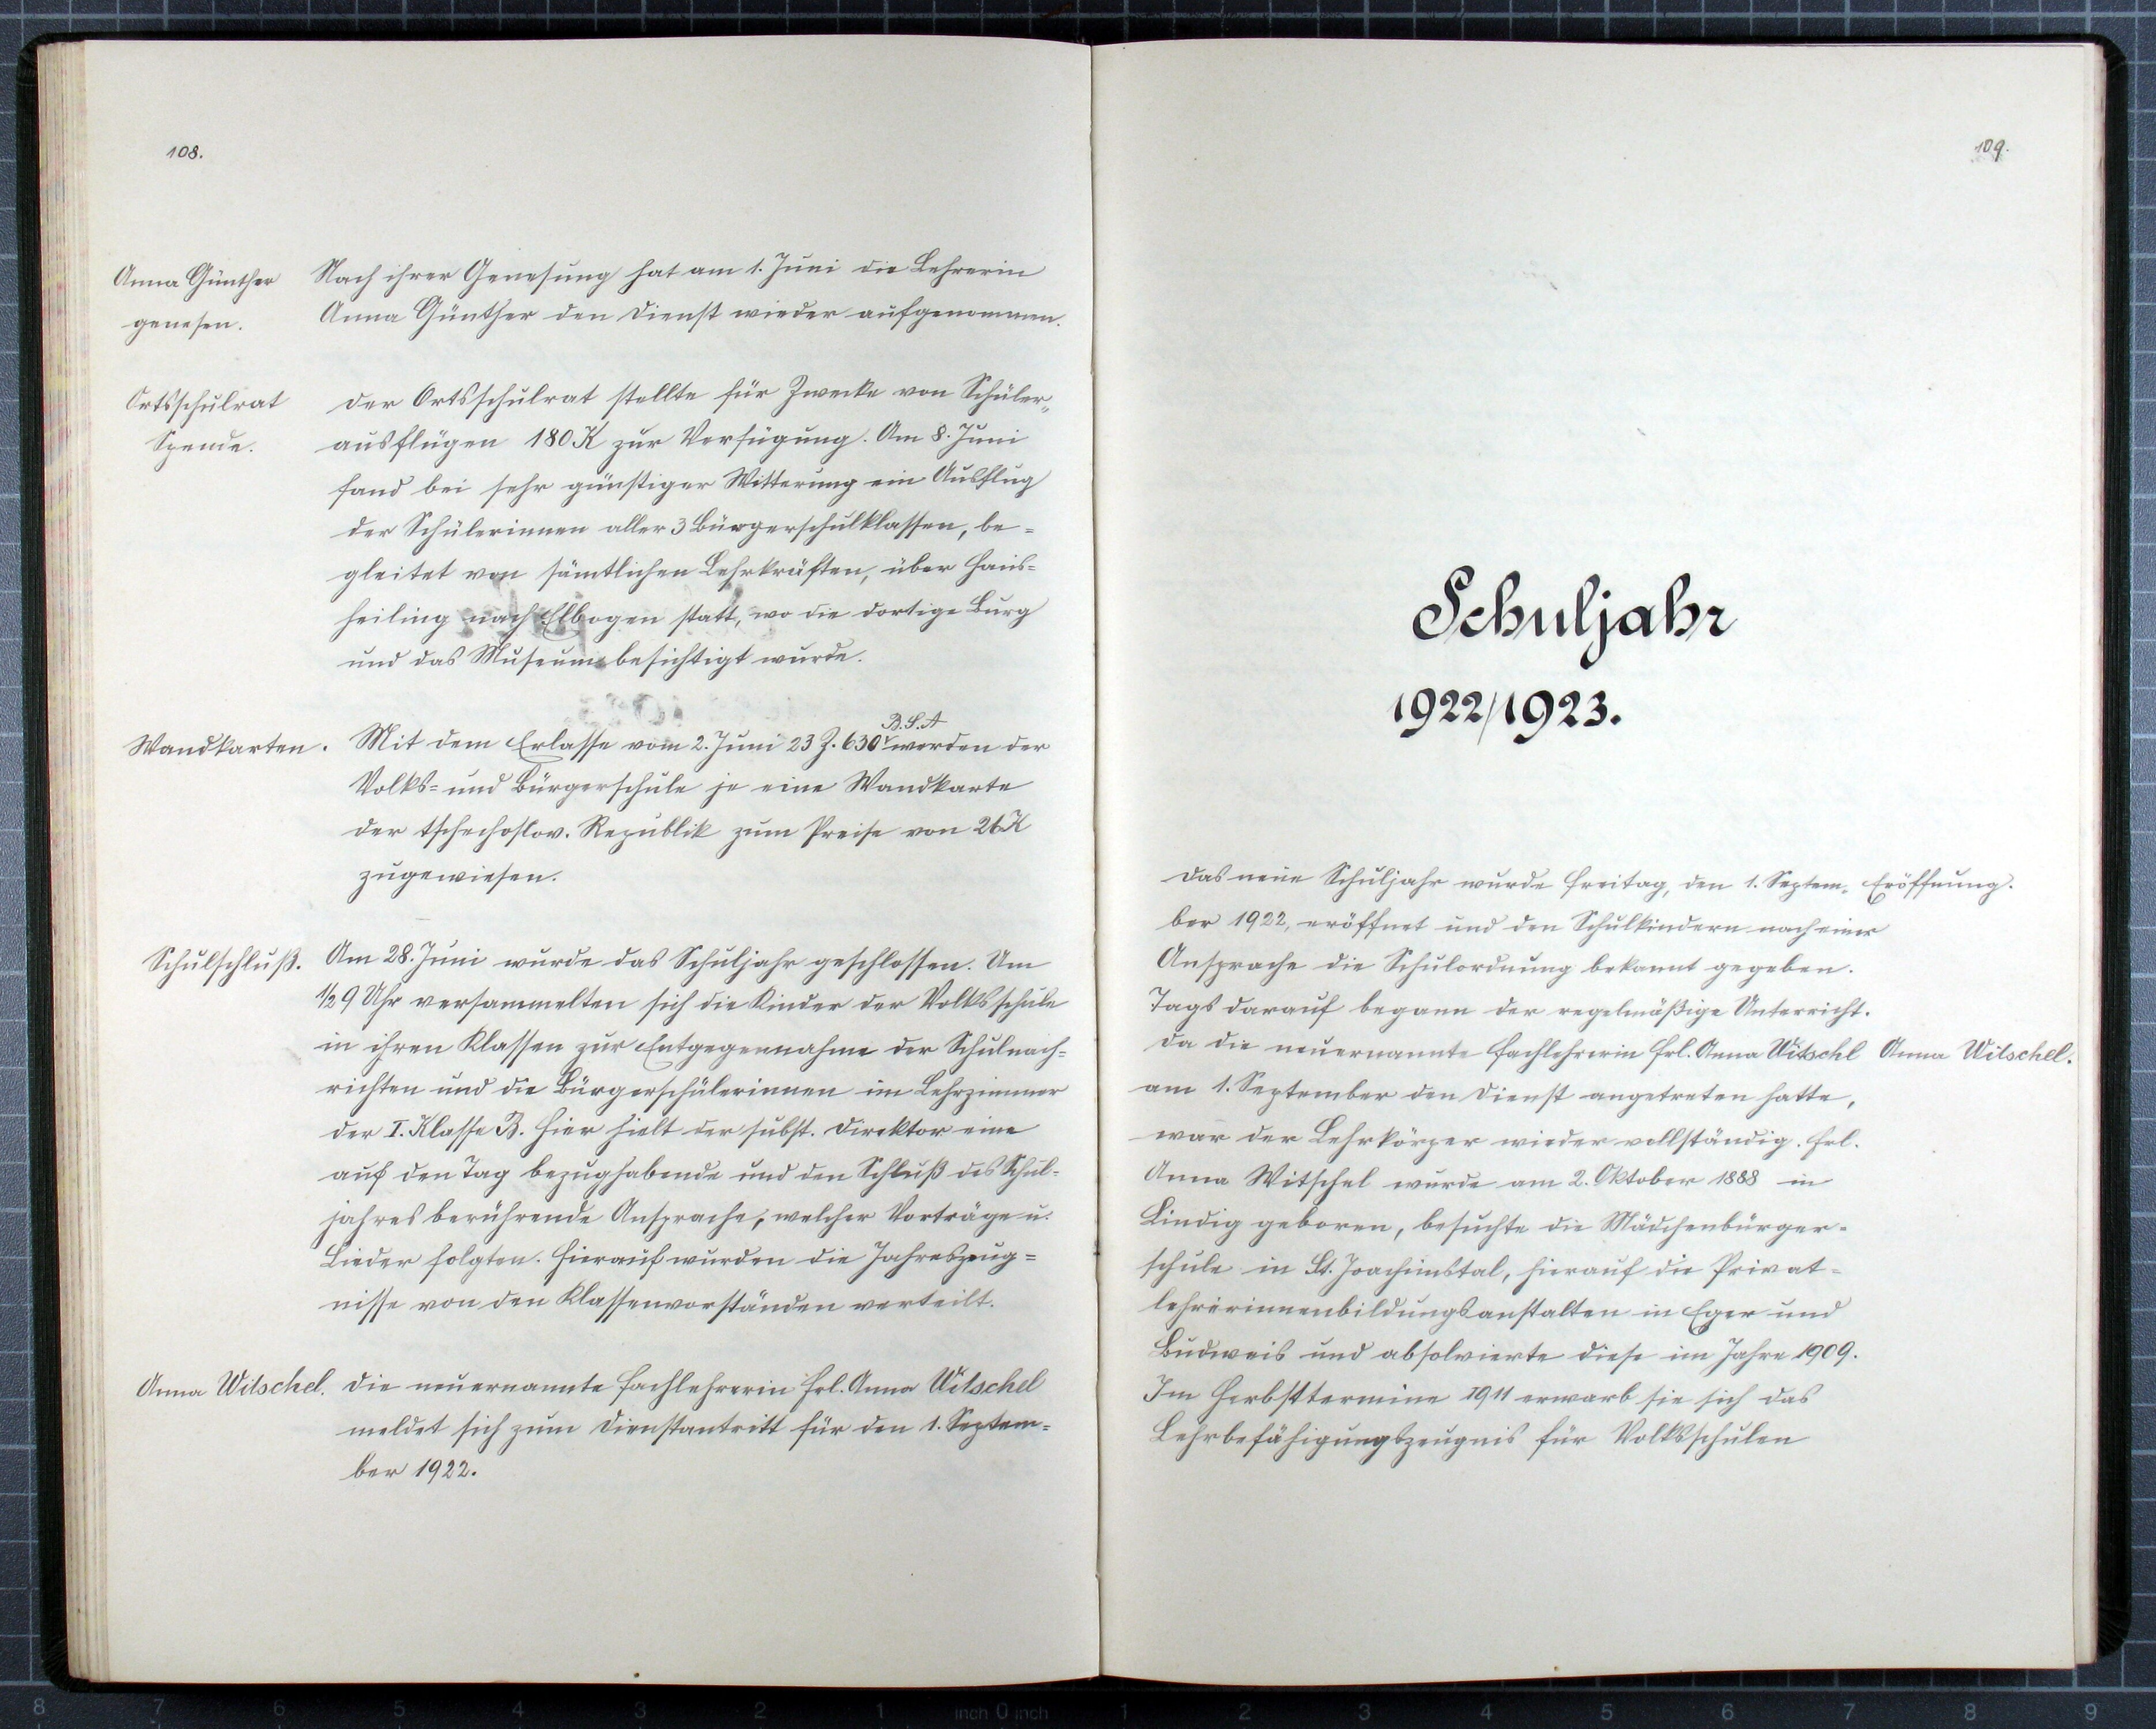 108.
Anna Günther
genesen.
Nach ihrer Genesung hat am 1. Juni die Lehrerin
Anna Günther den Dienst wieder aufgenommen.
Ortsschulrat
Spende.
Der Ortsschulrat stellte für Zwecke von Schüler„
ausflügen 180 K zur Verfügung. Am 8. Juni
fand bei sehr günstiger Witterung ein Ausflug
der Schülerinnen aller 3 Bürgerschulklassen, be=
gleitet von sämtlichen Lehrkräften, über Hans=
heiling nach Elbogen statt, wo die dortige Burg
und das Museum besichtigt wurde.
Wandkarten.
B.S.A
Mit dem Erlasse vom 2. Juni 23 Z. 630 werden der
Volks= und Bürgerschule je eine Wandkarte
der tschechoslov. Republik zum Preise von 26 K
zugewiesen.
Schulschluß.
Am 28. Juni wurde das Schuljahr geschlossen. Um
1/2 9 Uhr versammelten sich die Kinder der Volksschule
in ihren Klassen zur Entgegennahme der Schulnach=
richten und die Bürgerschülerinnen im Lehrzimmer
der I. Klasse B. Hier hielt der subst. Direktor eine
auf den Tag bezughabende und den Schluß des Schul=
jahres berührende Ansprache, welcher Vorträge u.
Lieder folgten. Hierauf wurden die Jahreszeug=
nisse von den Klassenvorständen verteilt.
Anna Witschel.
Die neuernannte Fachlehrerin Frl. Anna Witschel
meldet sich zum Dienstantritt für den 1. Septem=
ber 1922.
109.
Schuljahr
1922/1923.
Das neue Schuljahr wurde Freitag, den 1. Septem„
Eröffnung.
ber 1922, eröffnet und den Schulkindern nach einer
Ansprache die Schulordnung bekannt gegeben.
Tags darauf begann der regelmäßige Unterricht.
Da die neuernannte Fachlehrerin Frl. Anna Witschl
Anna Witschel.
am 1. September den Dienst angetreten hatte,
war der Lehrkörper wieder vollständig. Frl.
Anna Witschel wurde am 2. Oktober 1888 in
Lindig geboren, besuchte die Mädchenbürger=
schule in St. Joachimstal, hierauf die Privat=
lehrerinnenbildungsanstalten in Eger und
Budweis und absolvierte diese im Jahre 1909.
Im Herbsttermine 1911 erwarb sie sich das
Lehrbefähigungszeugnis für Volksschulen
8 7 6 5 4 3 2 1 inch 0 inch 1 2 3 4 5 6 7 8 9